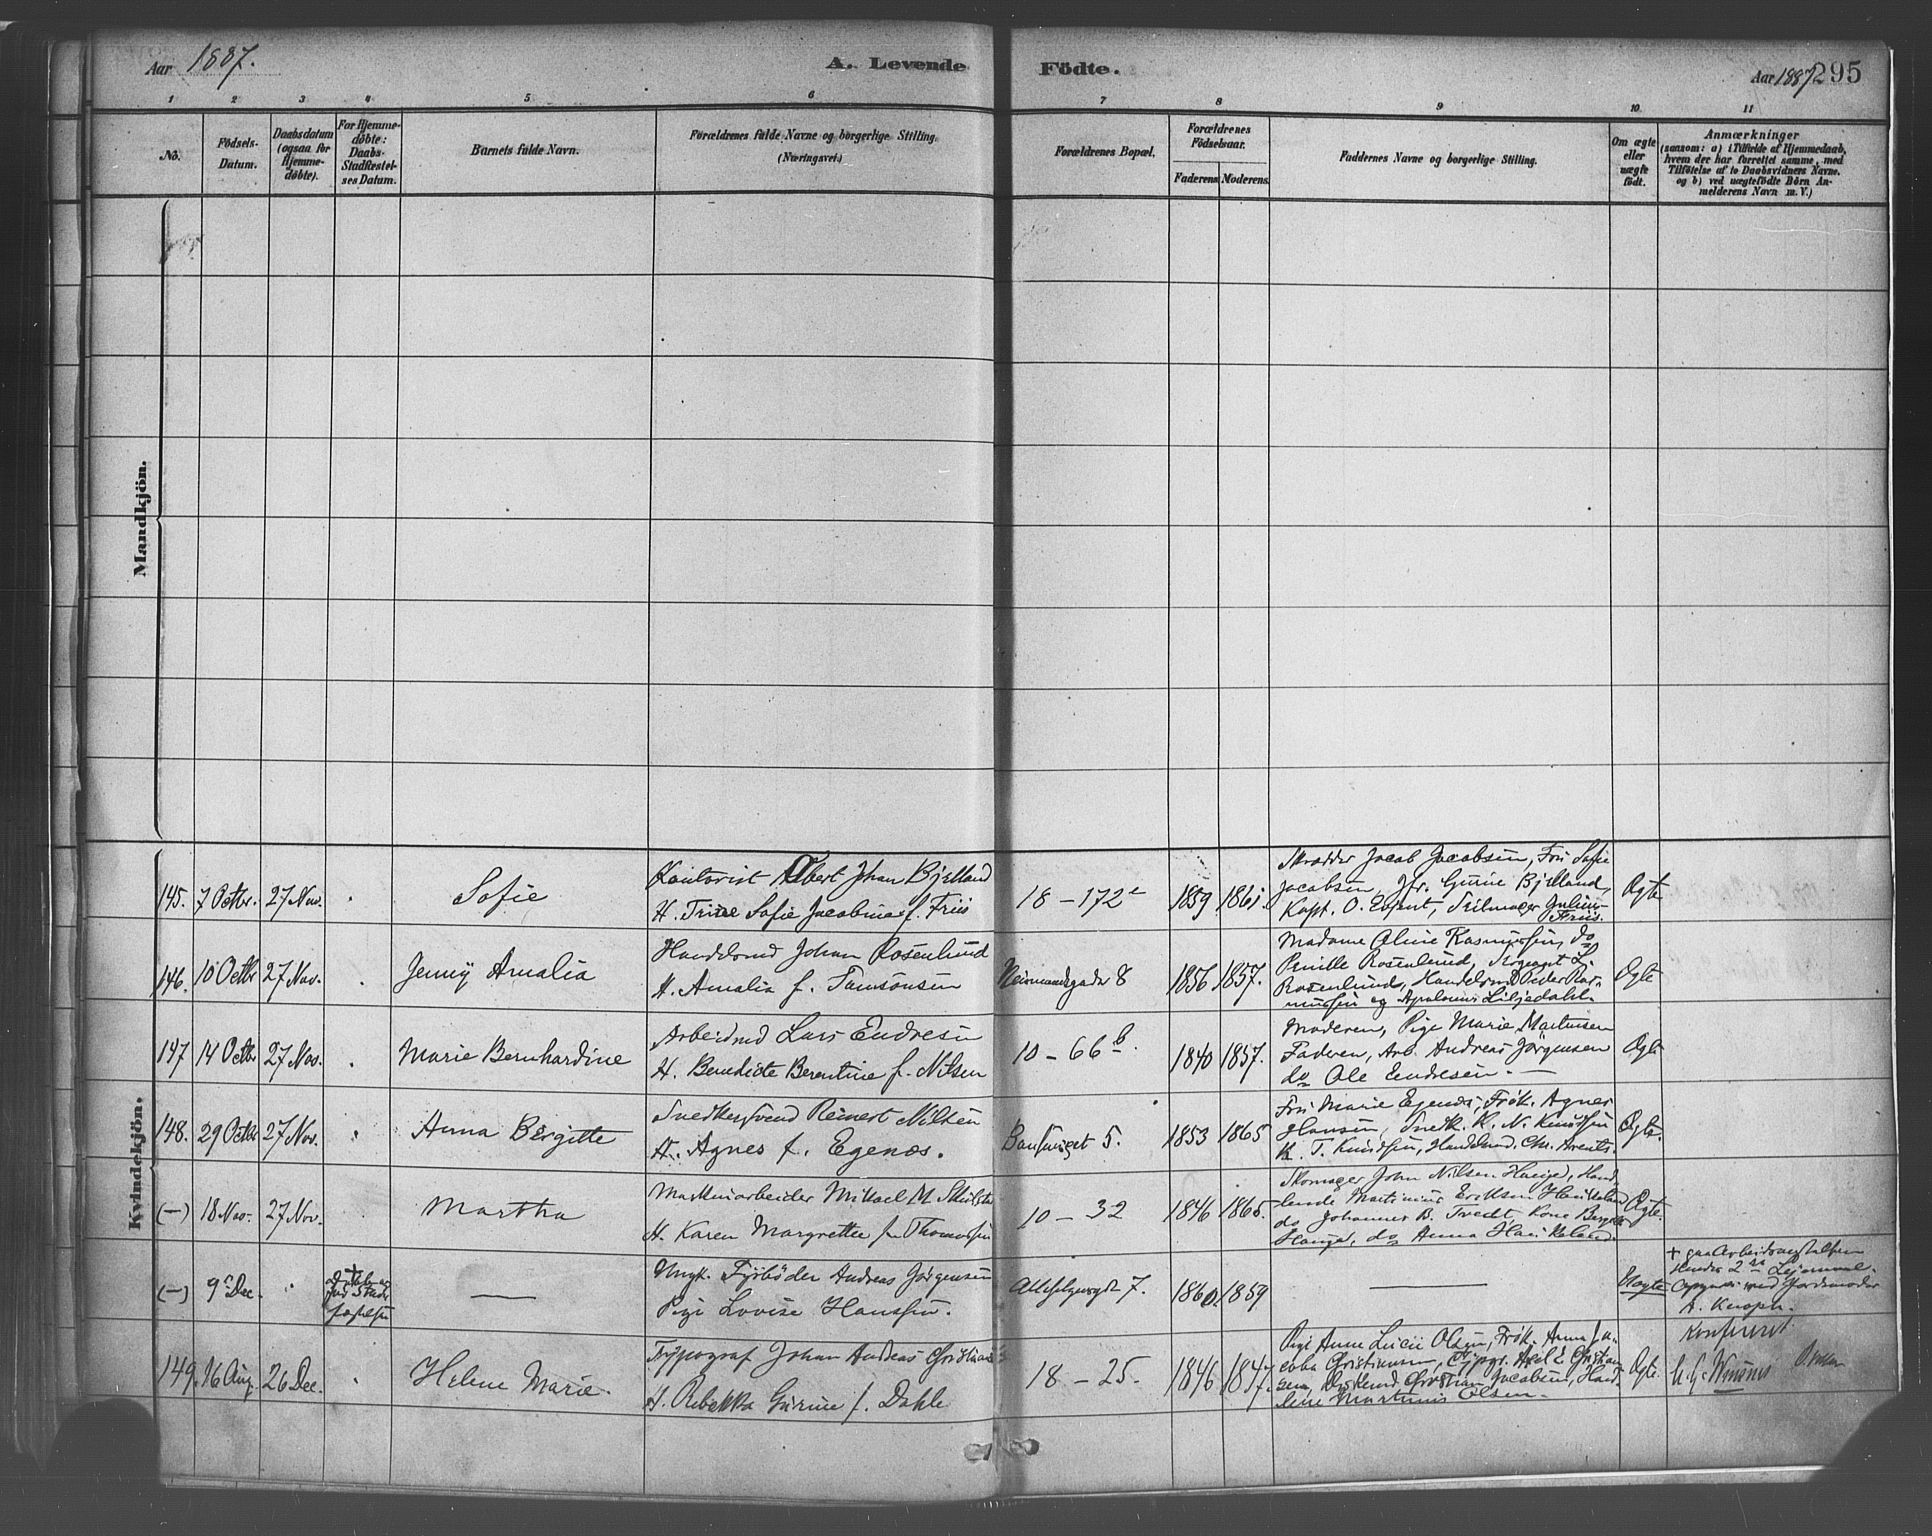 Aar 1887.
A. Levende Födte.
Aar 1887 295
1 2 3 4 5 6 7 8 9 10 11
No.
Födsels-
Datum.
Daabsdatum
(ogsaa for
Hjemme-
döbte).
For Hjemme-
döbte:
Daabs-
Stadfæstel-
ses Datum.
Barnets fulde Navn.
Forældrenes fulde Navne og borgerlige Stilling.
(Næringsvei.)
Forældrenes Bopæl.
Forældrenes
Födselsaar.
Faderens Moderens.
Faddernes Navne og borgerlige Stilling.
Om ægte
eller
uægte
födt.
Anmærkninger
(saasom: a) i Tilfælde af Hjemmedaab,
hvem der har forrettet samme, med
Tilföielse af to Daabsvidners Navne.
og b) ved uægtefödte Börn An-
melderens Navn m.V.)
Mandkjön.
Kvindekjön.
145. 7 Octbr. 27 Nov.
Sofie
Kontorist Albert Johan Bjelland
H. Trine Sofie Jacobine f. Friis
18 - 172
1859 1861.
Skrædder Jacob Jacobsen, Fru Sofie
Jacobsen, Jfr. Gurine Bjelland,
Kapt. O. Seilmager Julius
Friis.
Ægte
146. 10 Octbr 27 Nov.
Jenny Amalia
Handelsmd Johan Rosenlund
H. Amalia f. Tamsonsen
8
1856 1857.
Madame Aline Rasmussen, do
Pernille Rosenlund, Sergeant L.
Rosenlund, Handelsmd Peder Ras-
mussen og Liljedahl.
Ægte
147 14 Octbr 27 Nov.
Marie Bernhardine
Arbeidsmd Lars Endresen
H. Benedicte Berentine f. Nilsen
10 - 66 b.
1840 1857.
Moderen, Pige Marie Martinsen
Faderen, Arb. Andreas Jörgensen
do Ole Endresen.
Ægte
148. 29 Octbr 27 Nov.
Anna Birgitte
Snedkersvend Reinert Nilsen
H. Agnes f. Egenæs.
5.
1853 1865
Fru Marie Egenæs, Frök. Agnes
Hansen, Snedk. K. N. Knudsen
K. T. Knudsen, Handelsmd. Chr. Arents.
Ægte.
(-) 18 Nov. 27 Nov.
Martha
Maskinarbeider Mikael M.
H. Karen Margrethe f. Thomassen
10 - 32
1846 1865.
Skomager John Nilsen Hauge, Hand-
lende Martinius Eriksen
do Johannes B. Tvedt, Kone
Hauge, do Anna
Ægte.
(-) 9 Dec.
+
Död
för Stad-
fæstelsen
Ungk. Fyrböder Andreas Jörgensen
Pige Lovise Hanssen.
7.
1860. 1859
Uægte
+ paa Arbeidsanstalten
Hendes 2det Leiermaal.
Opgivet ved Jordemoder
A. Knoph.
149. 16 Aug. 26 Dec.
Helene Marie.
Typograf Johan Andreas Christiansen
H. Rebekka Gurine f. Dahle
18 - 25.
1846 1847.
Pige Anne Olsen, Frök. Anna Ja-
coba Christiansen, Typogr. Axel E. Christian-
sen, Christian Jacobsen, Hand-
lende Martinius Olsen.
Ægte.
Konfereret